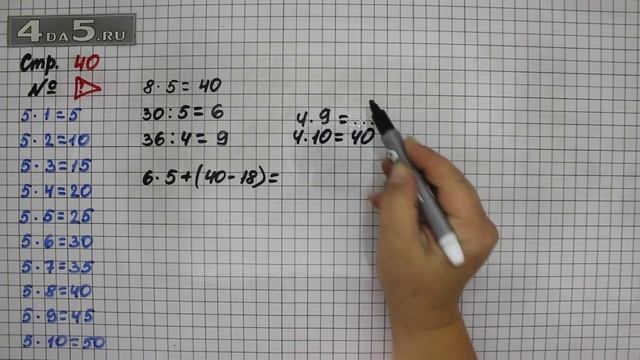 4DA5.RU
Стр. 40
№ !
5·1=5
5·2=10
5·3=15
5·4=20
5·5=25
5·6=30
5·7=35
5·8=40
5·9=45
5·10=50
8·5=40
30:5=6
36:4=9
6·5+(40-18)=
4·9=...
4·10=40